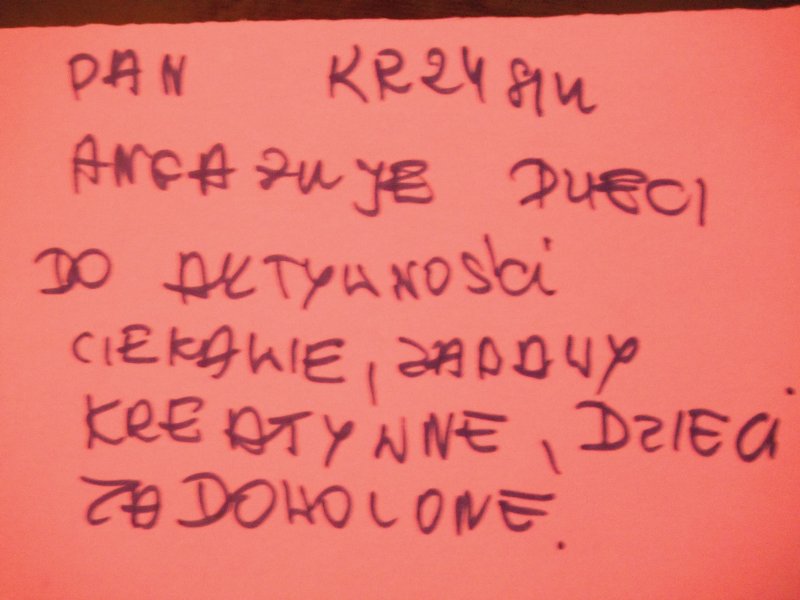 PAN KRZYSIU
ANGAZUJE DZIECI
DO AKTYWNOŚCI
CIEKAWIE, ZABAWY
KREATYWNE, DZIECI
ZADOWOLONE.